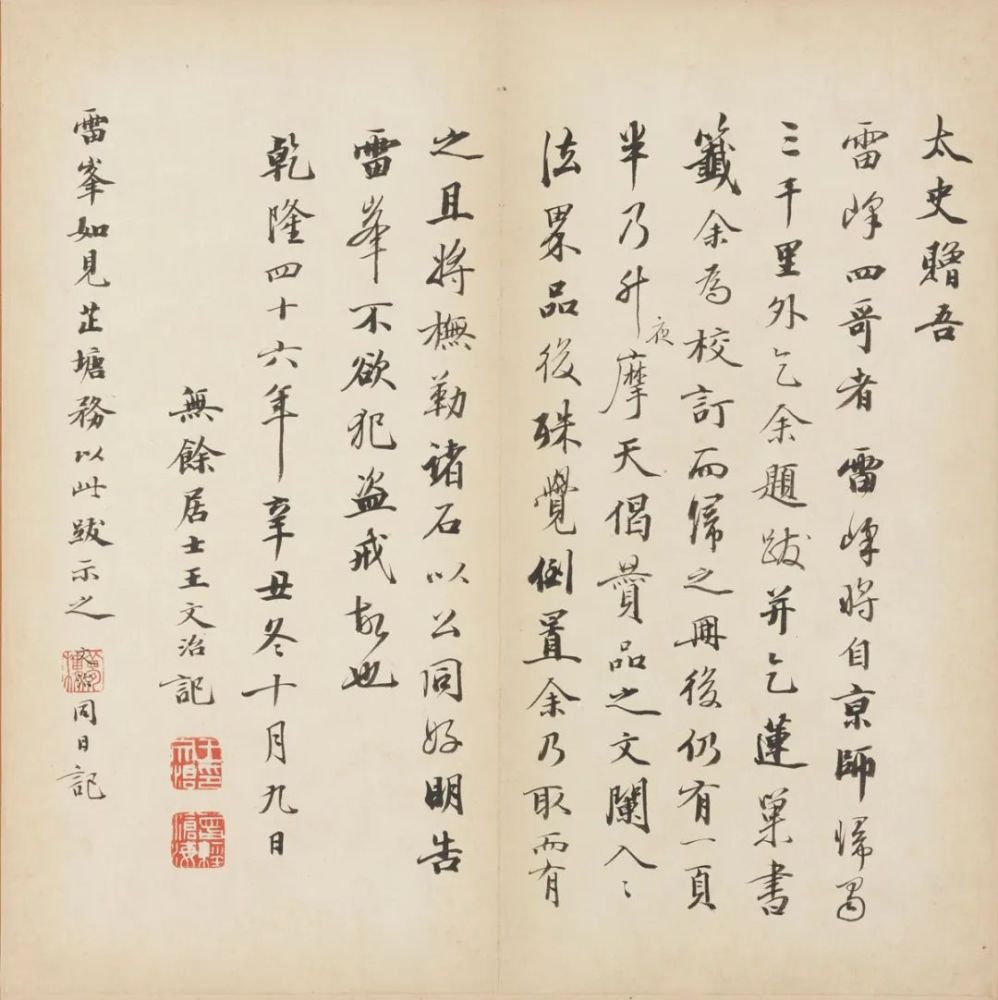 太史贈吾
雷峰四哥者雷峰將自京師帰蜀
三千里外乞余題跋并乞蓮巢書
籤余為校訂而歸之冊後仍有一頁
半乃升夜摩天偈贊品之文闌入〻
法界品後殊覺倒置余乃取而有
之且將橅勒諸石以公同好明告
雷峯不欲犯盜戒故也
乾隆四十六年辛丑冬十月九日
無餘居士王文治記
雷峯如見芷塘務以此跋示之
同日記